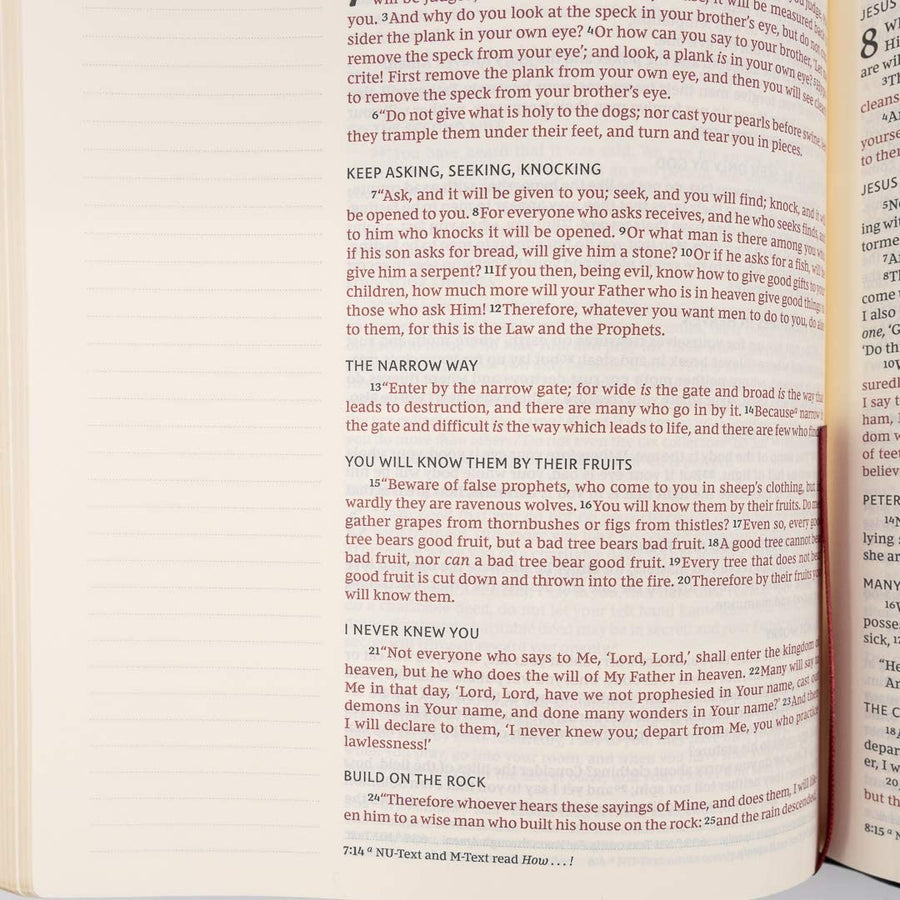 will be judged; it will be measured back
you. 3And why do you look at the speck in your brother's eye, but do not
sider the plank in your own eye? 4Or how can you say to your brother, 'Let
remove the speck from your eye'; and look, a plank is in your own eye?
crite! First remove the plank from your own eye, and then you will see clea
to remove the speck from your brother's eye.
6"Do not give what is holy to the dogs; nor cast your pearls before swine,
they trample them under their feet, and turn and tear you in pieces.
KEEP ASKING, SEEKING, KNOCKING
7"Ask, and it will be given to you; seek, and you will find; knock, and it
be opened to you. 8For everyone who asks receives, and he who seeks finds,
to him who knocks it will be opened. 9Or what man is there among you
if his son asks for bread, will give him a stone? 10Or if he asks for a fish, will
give him a serpent? 11If you then, being evil, know how to give good gifts to your
children, how much more will your Father who is in heaven give good things
those who ask Him! 12Therefore, whatever you want men to do to you, do
to them, for this is the Law and the Prophets.
THE NARROW WAY
13"Enter by the narrow gate; for wide is the gate and broad is the way
leads to destruction, and there are many who go in by it. 14Because a narrow
the gate and difficult is the way which leads to life, and there are few who find
YOU WILL KNOW THEM BY THEIR FRUITS
15"Beware of false prophets, who come to you in sheep's clothing, but
wardly they are ravenous wolves. 16You will know them by their fruits. Do
gather grapes from thornbushes or figs from thistles? 17Even so, every go
tree bears good fruit, but a bad tree bears bad fruit. 18A good tree cannot
bad fruit, nor can a bad tree bear good fruit. 19Every tree that does not
good fruit is cut down and thrown into the fire. 20Therefore by their fruits
will know them.
I NEVER KNEW YOU
21"Not everyone who says to Me, 'Lord, Lord,' shall enter the kingdom
heaven, but he who does the will of My Father in heaven. 22Many will say
Me in that day, 'Lord, Lord, have we not prophesied in Your name, cast out
demons in Your name, and done many wonders in Your name?' 23And then
I will declare to them, 'I never knew you; depart from Me, you who practice
lawlessness!'
BUILD ON THE ROCK
24"Therefore whoever hears these sayings of Mine, and does them, I will
en him to a wise man who built his house on the rock: 25and the rain descended,
7:14 a NU-Text and M-Text read How . . . !
JESUS
8 W
Hi
are wil
3Th
cleans
4A
yourse
to then
JESUS
5N
ing wit
torme
7A
8Th
come
I also
one, 'G
'Do th
10W
suredl
I say t
ham, I
dom w
of teet
believ
PETER
14N
lying
she ar
MANY
16W
posse
sick, 17
"He
An
THE C
18A
depar
er, I w
20
but th
8:15 a N